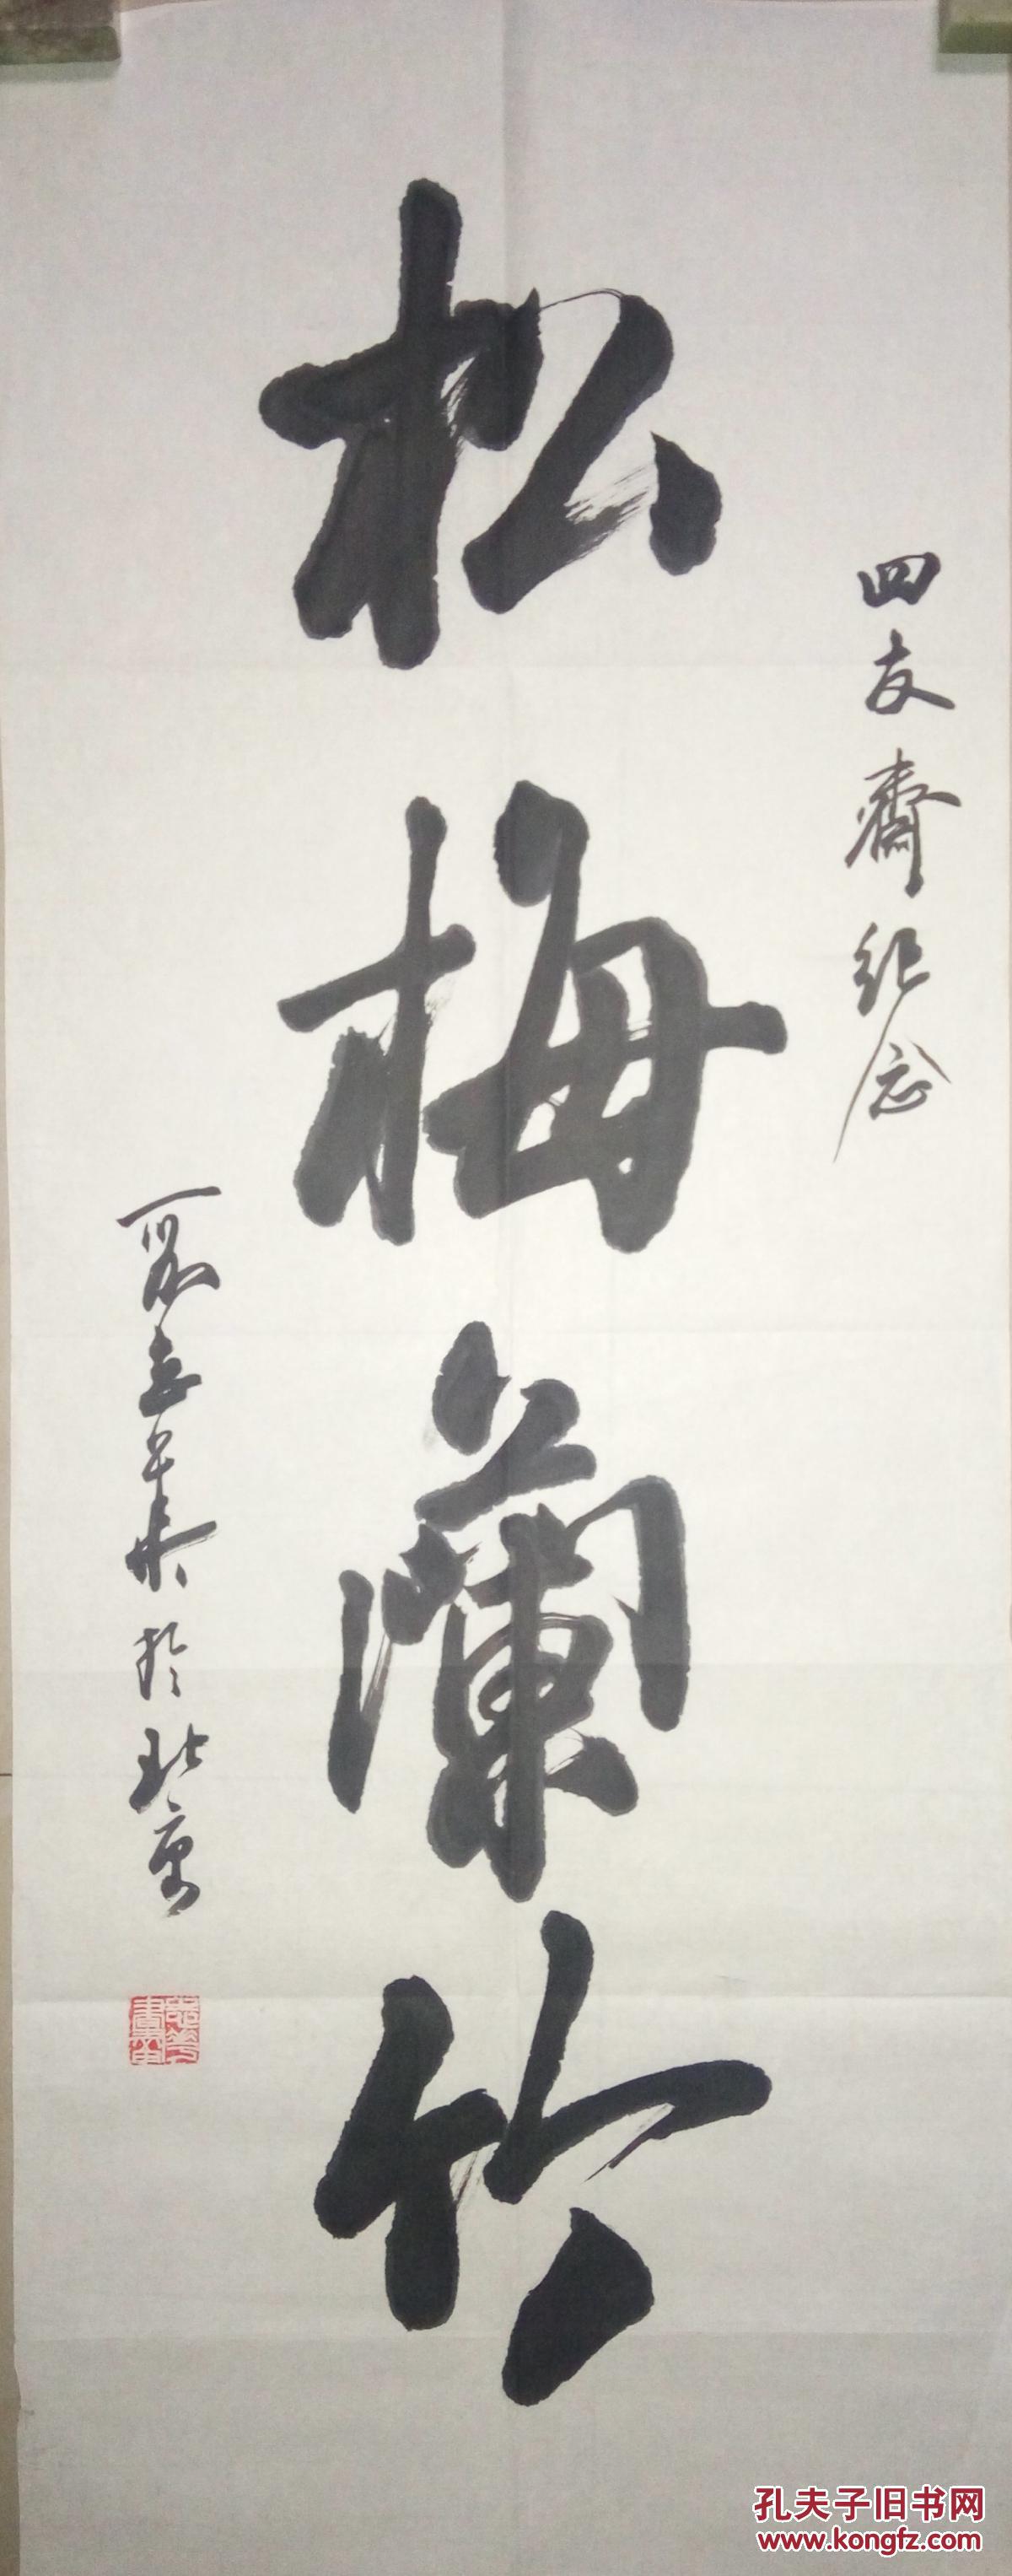 四友齋紀念
松梅蘭竹
於北京
孔夫子旧书网
www.kongfz.com